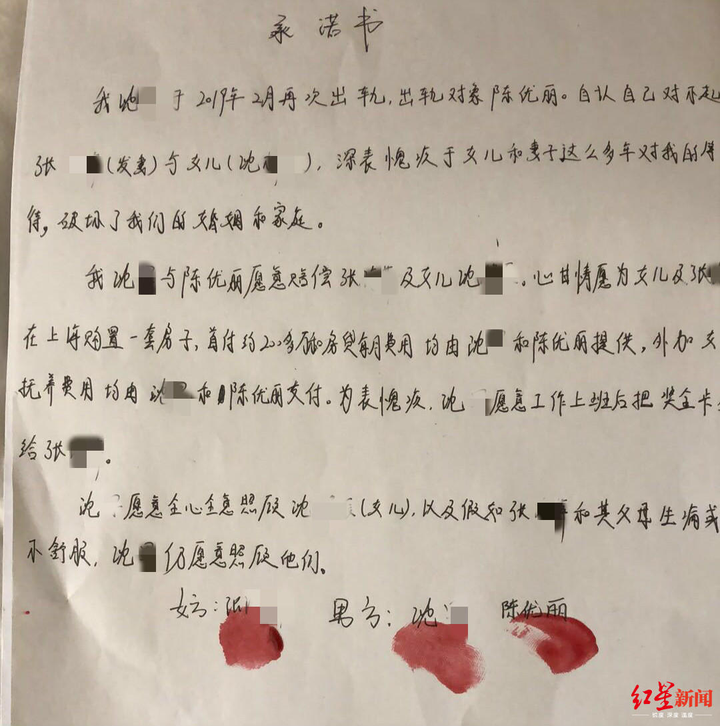 承诺书
我沈 于2019年2月再次出轨,出轨对象陈优丽。自认自己对不起
张 (发妻)与女儿(沈 ),深表愧疚于女儿和妻子这么多年对我的
待,破坏了我们的婚姻和家庭。
我沈 与陈优丽愿意赔偿张 及女儿沈 。心甘情愿为女儿及张
在上海购置一套房子,首付约200多万和房贷每月费用均由沈 和陈优丽提供,外加女
抚养费用均由沈 和陈优丽交付。为表愧疚,沈 愿意工作上班后把奖金卡
给张 。
沈 愿意全心全意照顾沈 (女儿),以及假如张 和其父母生病或
不舒服,沈 仍愿意照顾他们。
女方:张 男方:沈 陈优丽
红星新闻